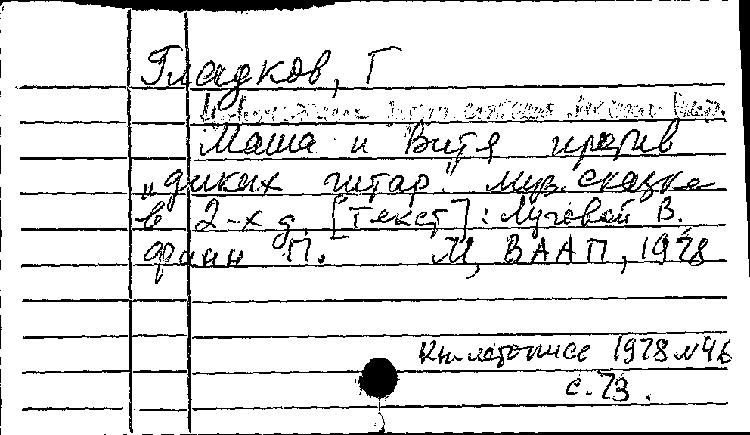 Гладков, Г
Маша и Витя против
„диких гитар". муз. сказка
в 2-х д. [Текст]: Луговой В.
Финн П. М, ВААП, 1978
Кн. летопись 1978 №46
с. 73.